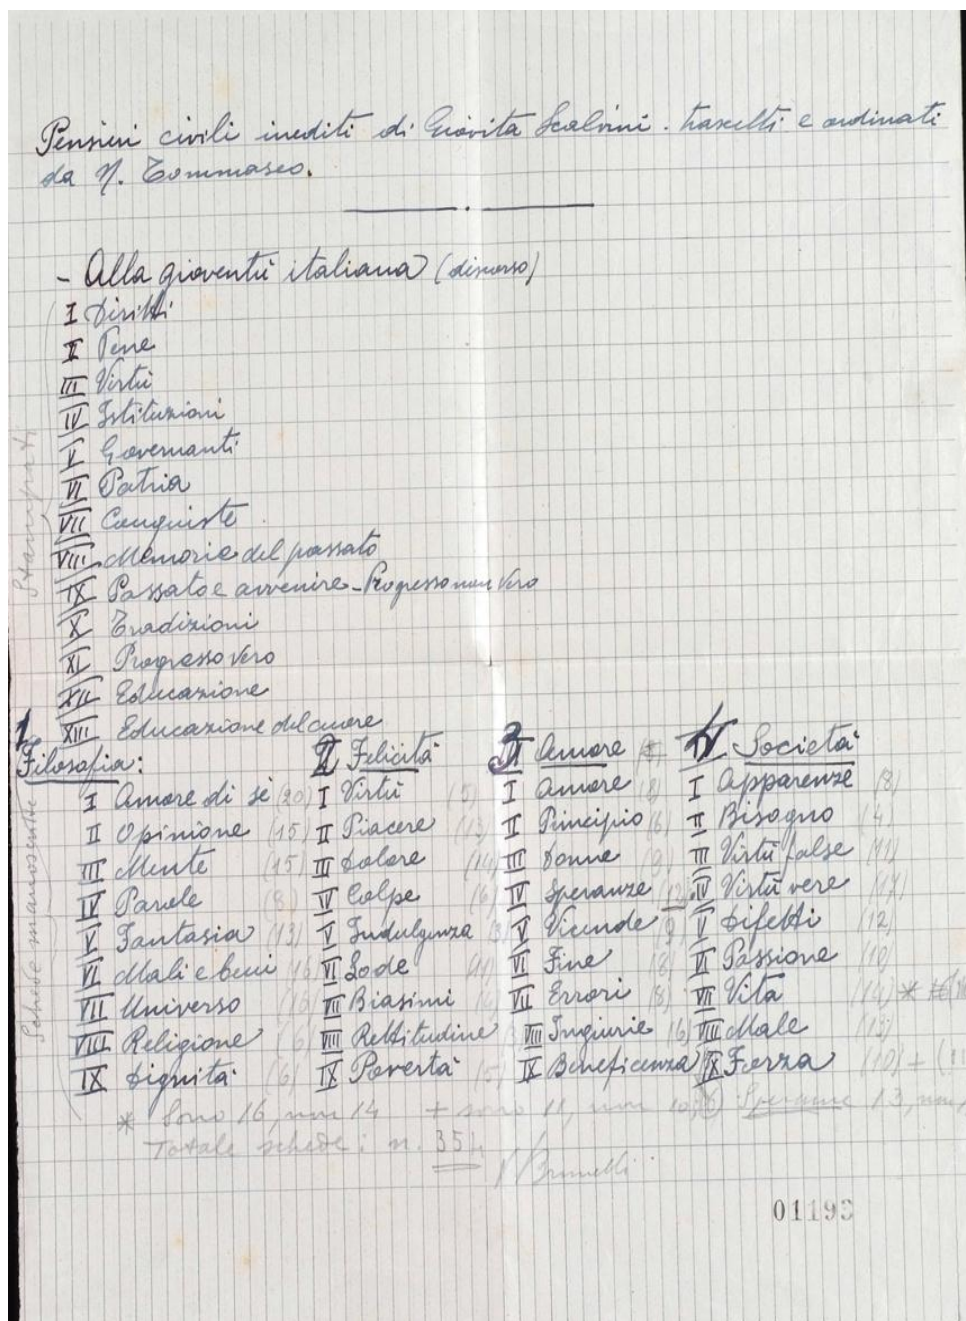 Pensieri civili inediti di Giovita Scalvini. trascelti e ordinati
da N. Tommaseo.
- Alla gioventù italiana (discorso)
I Diritti
II Pene
III Virtù
IV Istituzioni
V Governanti
VI Patria
VII Conquiste
VIII Memorie del passato
IX Passato e avvenire - Progresso non vero
X Tradizioni
XI Progresso vero
XII Educazione
XIII Educazione del cuore
Stampati
1 Filosofia:
I Amore di sè (20)
II Opinione (15)
III Mente (15)
IV Parole (8)
V Fantasia (13)
VI Mali e beni (16)
VII Universo
VIII Religione (6)
IX Dignità (6)
Schede manoscritte
2 Felicità
I Virtù (5)
II Piacere (13)
III Dolore (14)
IV Colpe (6)
V Indulgenza
VI Lode
VII Biasimi
VIII Rettitudine
IX Povertà (5)
3 Amore
I Amore (8)
II Principio (6)
III Donne (9)
IV Speranze (12)
V Vicende (9)
VI Fine (8)
VII Errori (8)
VIII Ingiurie (6)
IX Beneficenza
IV Società
I Apparenze (8)
II Bisogno (4)
III Virtù false (11)
IV Virtù vere (17)
V Difetti (12)
VI Passione (10)
VII Vita (14) *
VIII Male (13)
IX Forza (10) +
* Sono 16, non 14 + sono 11, non 10; Speranze 13, non
Totale schede: n. 351
V Brunelli
01193